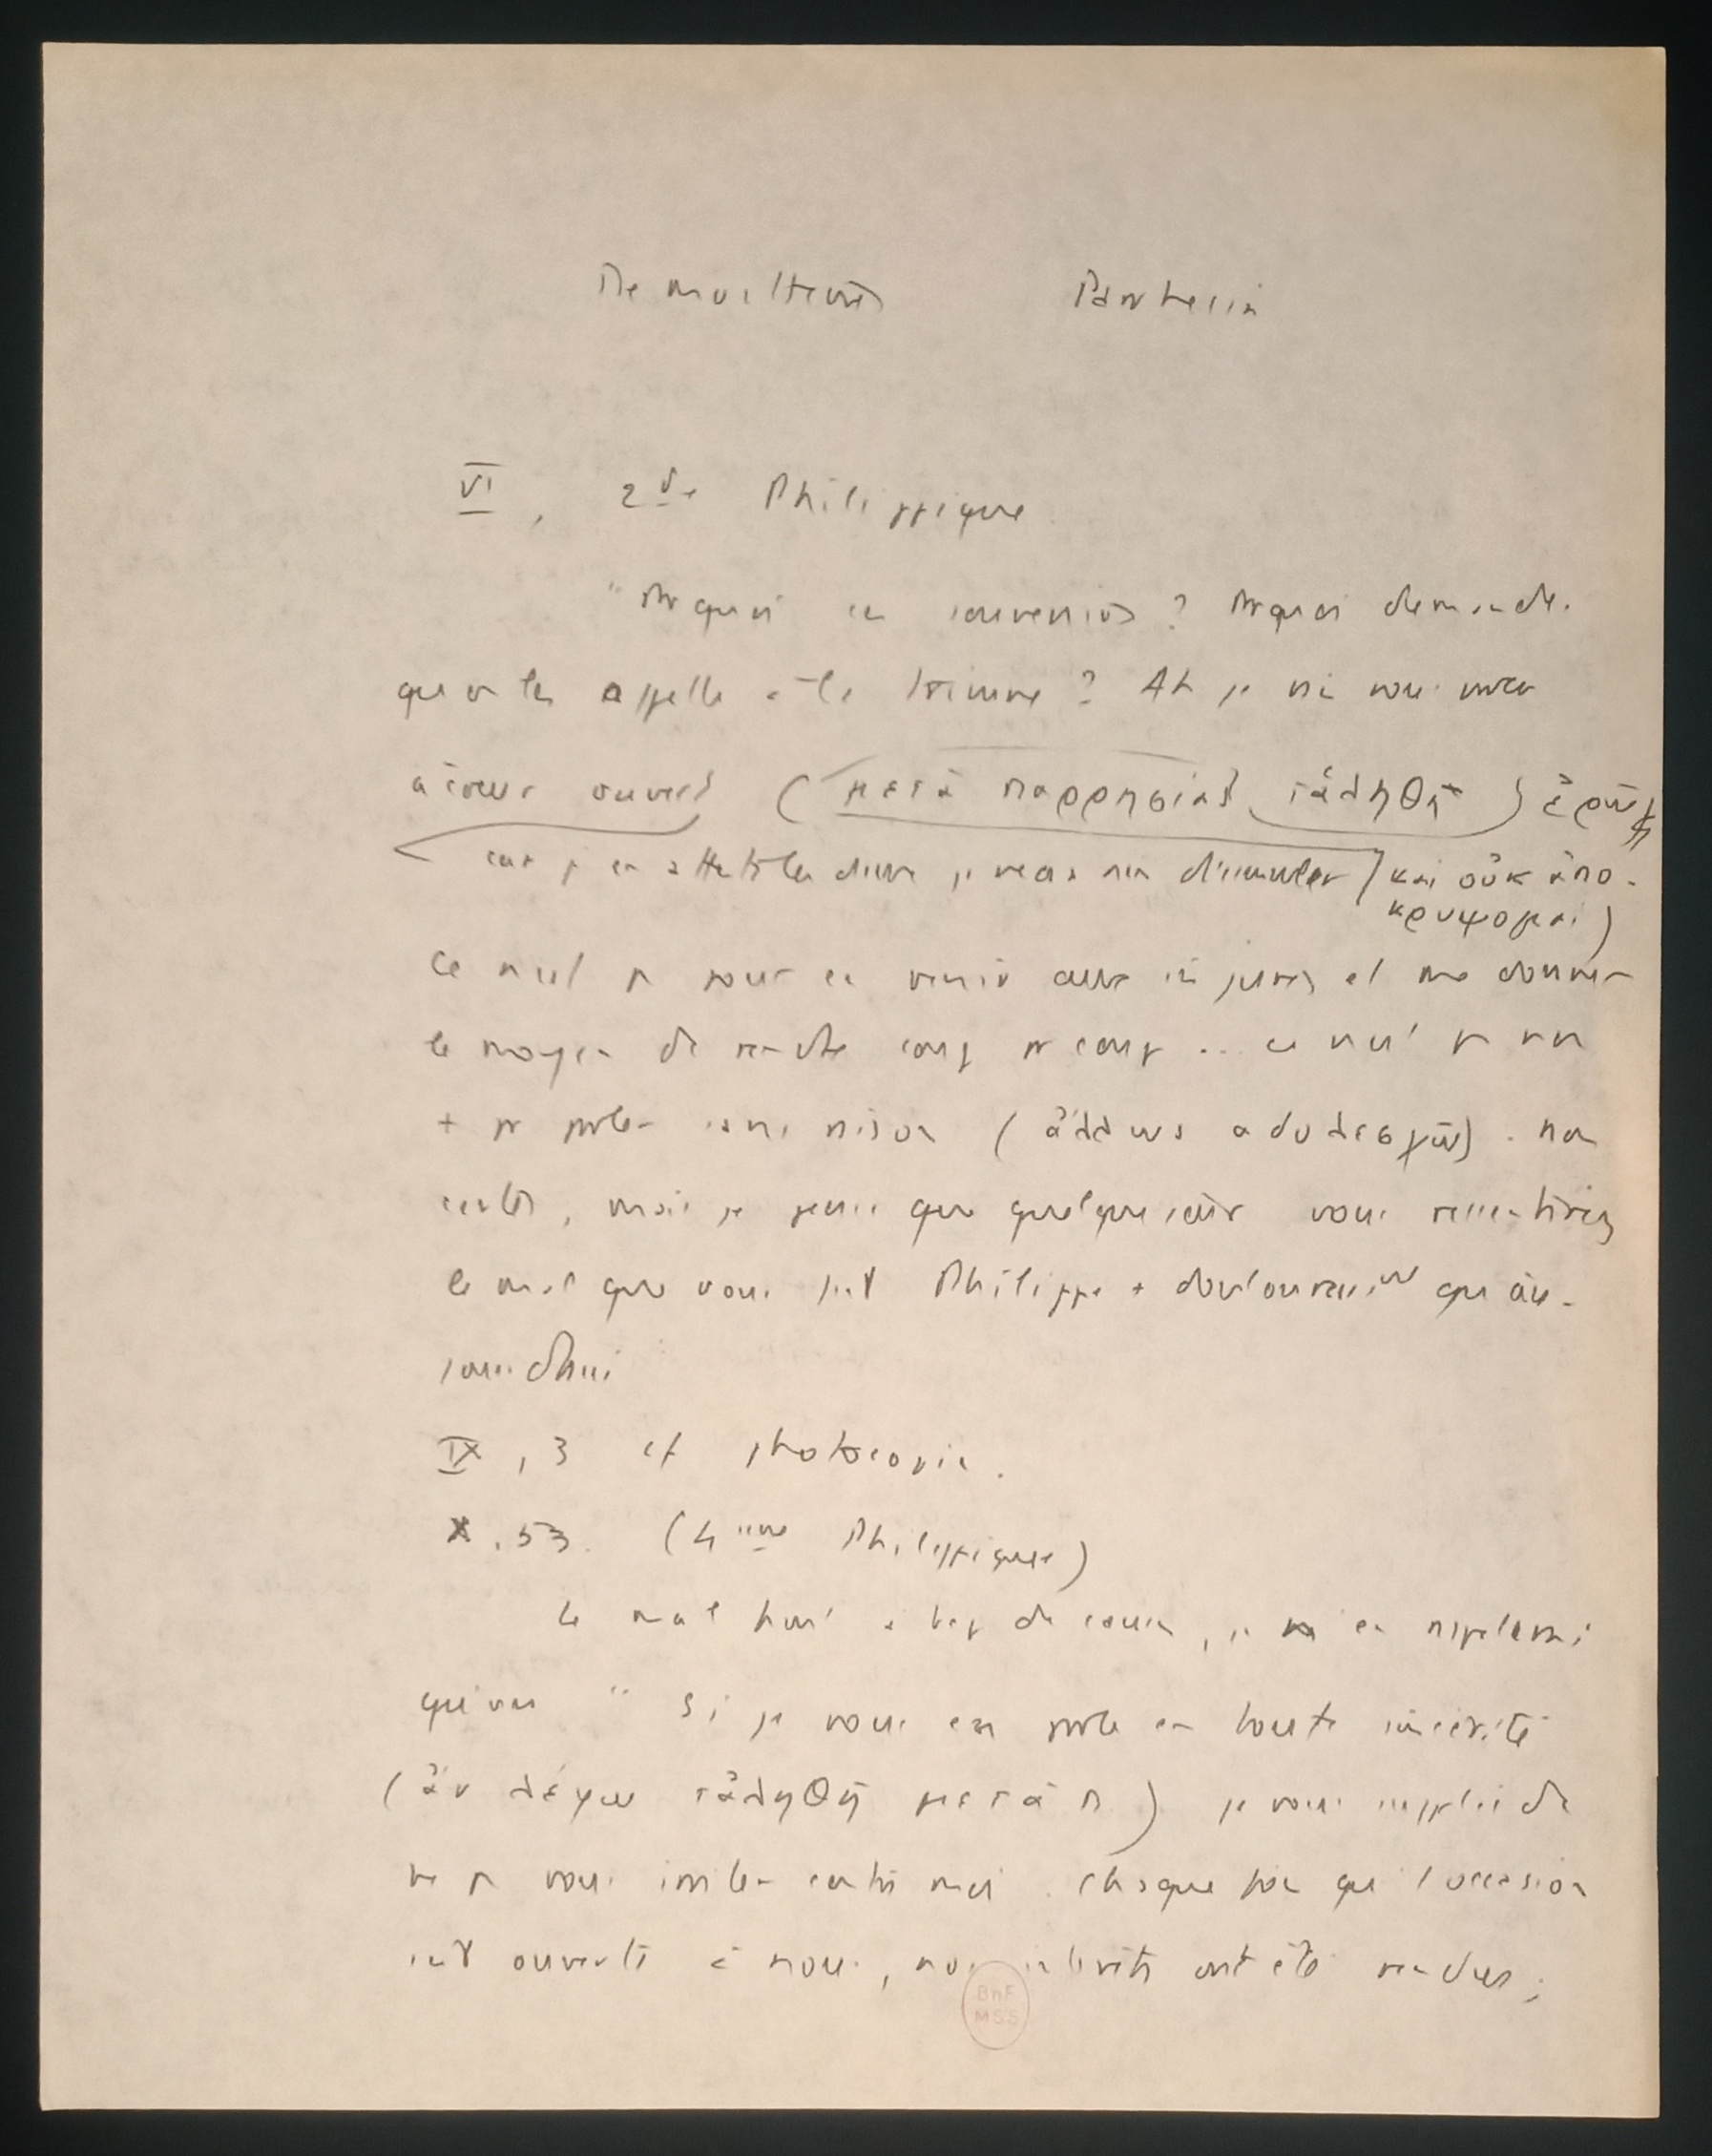 Demosthenes Parrhesia
VI, 2de Philippique
"Pr quoi ces souvenirs ? Prquoi demander
qu'on les appelle à la tribune ? Ah je vais vous
à coeur ouvert (μετὰ παρρησίας τἀληθῆ) ἐρῶ
car j'en atteste les dieux je veux rien dissimuler (καὶ οὐκ ἀπο-
κρύψομαι)
Ce n'est pas pour en venir aux injures et me donner
le moyen de rendre coup pr coup ... ce n'est pas non
+ pr parler sans raison (ἄλλως ἀδολεσχῶ). Non
certes, mais je pense que quelque jour vous ressentirez
le mal que vous fait Philippe + douloureusemt qu'au-
jourd'hui
IX, 3 cf photocopie.
X. 53. (4ième Philippique)
"Si je vous en parle en toute sincérité
(ἂν λέγω τἀληθῆ μετὰ π.) je vous supplie de
ne pas vous irriter contre moi. Chaque fois que l'occasion
s'est ouverte à nous, nos intérêts ont été vendus;
BnF
MSS